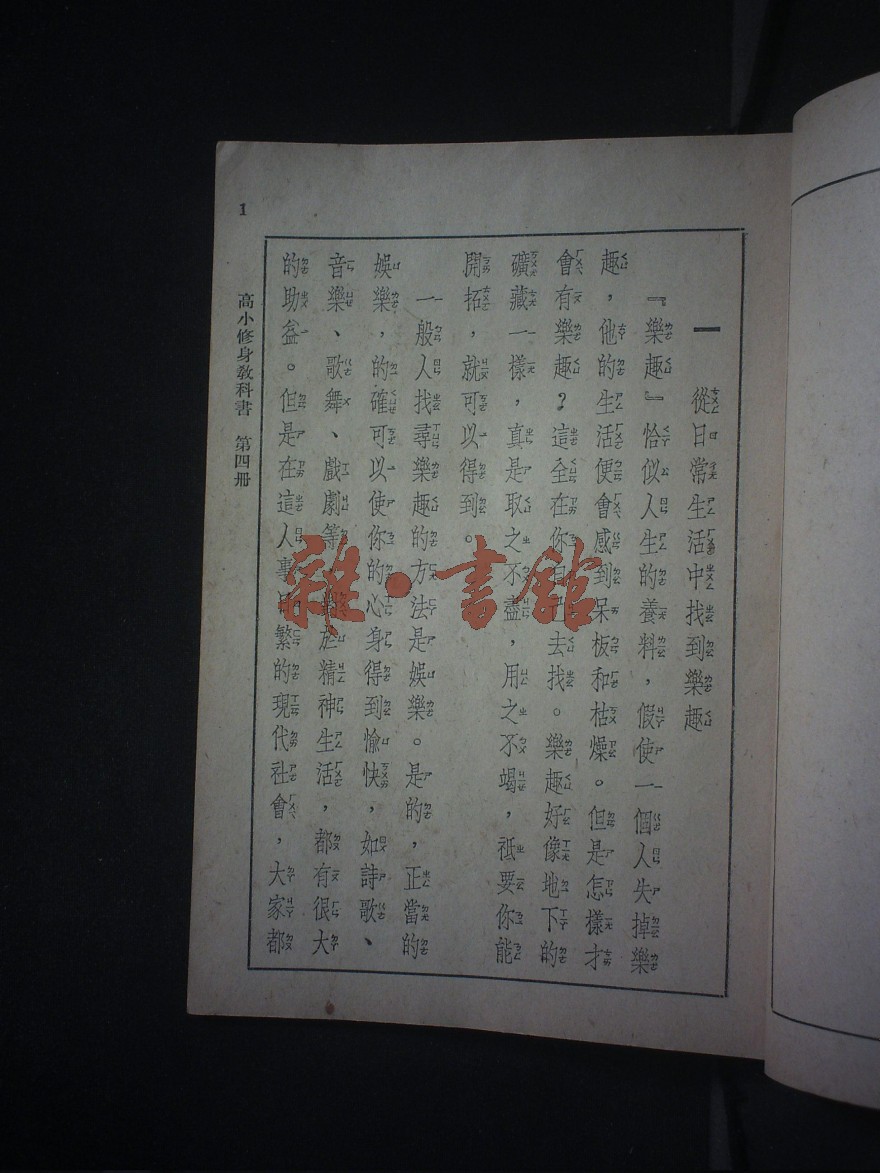 一 從日常生活中找到樂趣
『樂趣』恰似人生的養料，假使一個人失掉樂
趣，他的生活便會感到呆板和枯燥。但是怎樣才
會有樂趣？這全在你自己去找。樂趣好像地下的
礦藏一樣，真是取之不盡，用之不竭，祇要你能
開拓，就可以得到。
一般人找尋樂趣的方法是娛樂。是的，正當的
娛樂，的確可以使你的心身得到愉快，如詩歌、
音樂、歌舞、戲劇等，於精神生活，都有很大
的助益。但是在這人事日繁的現代社會，大家都
高小修身教科書 第四册
1
雜·書館